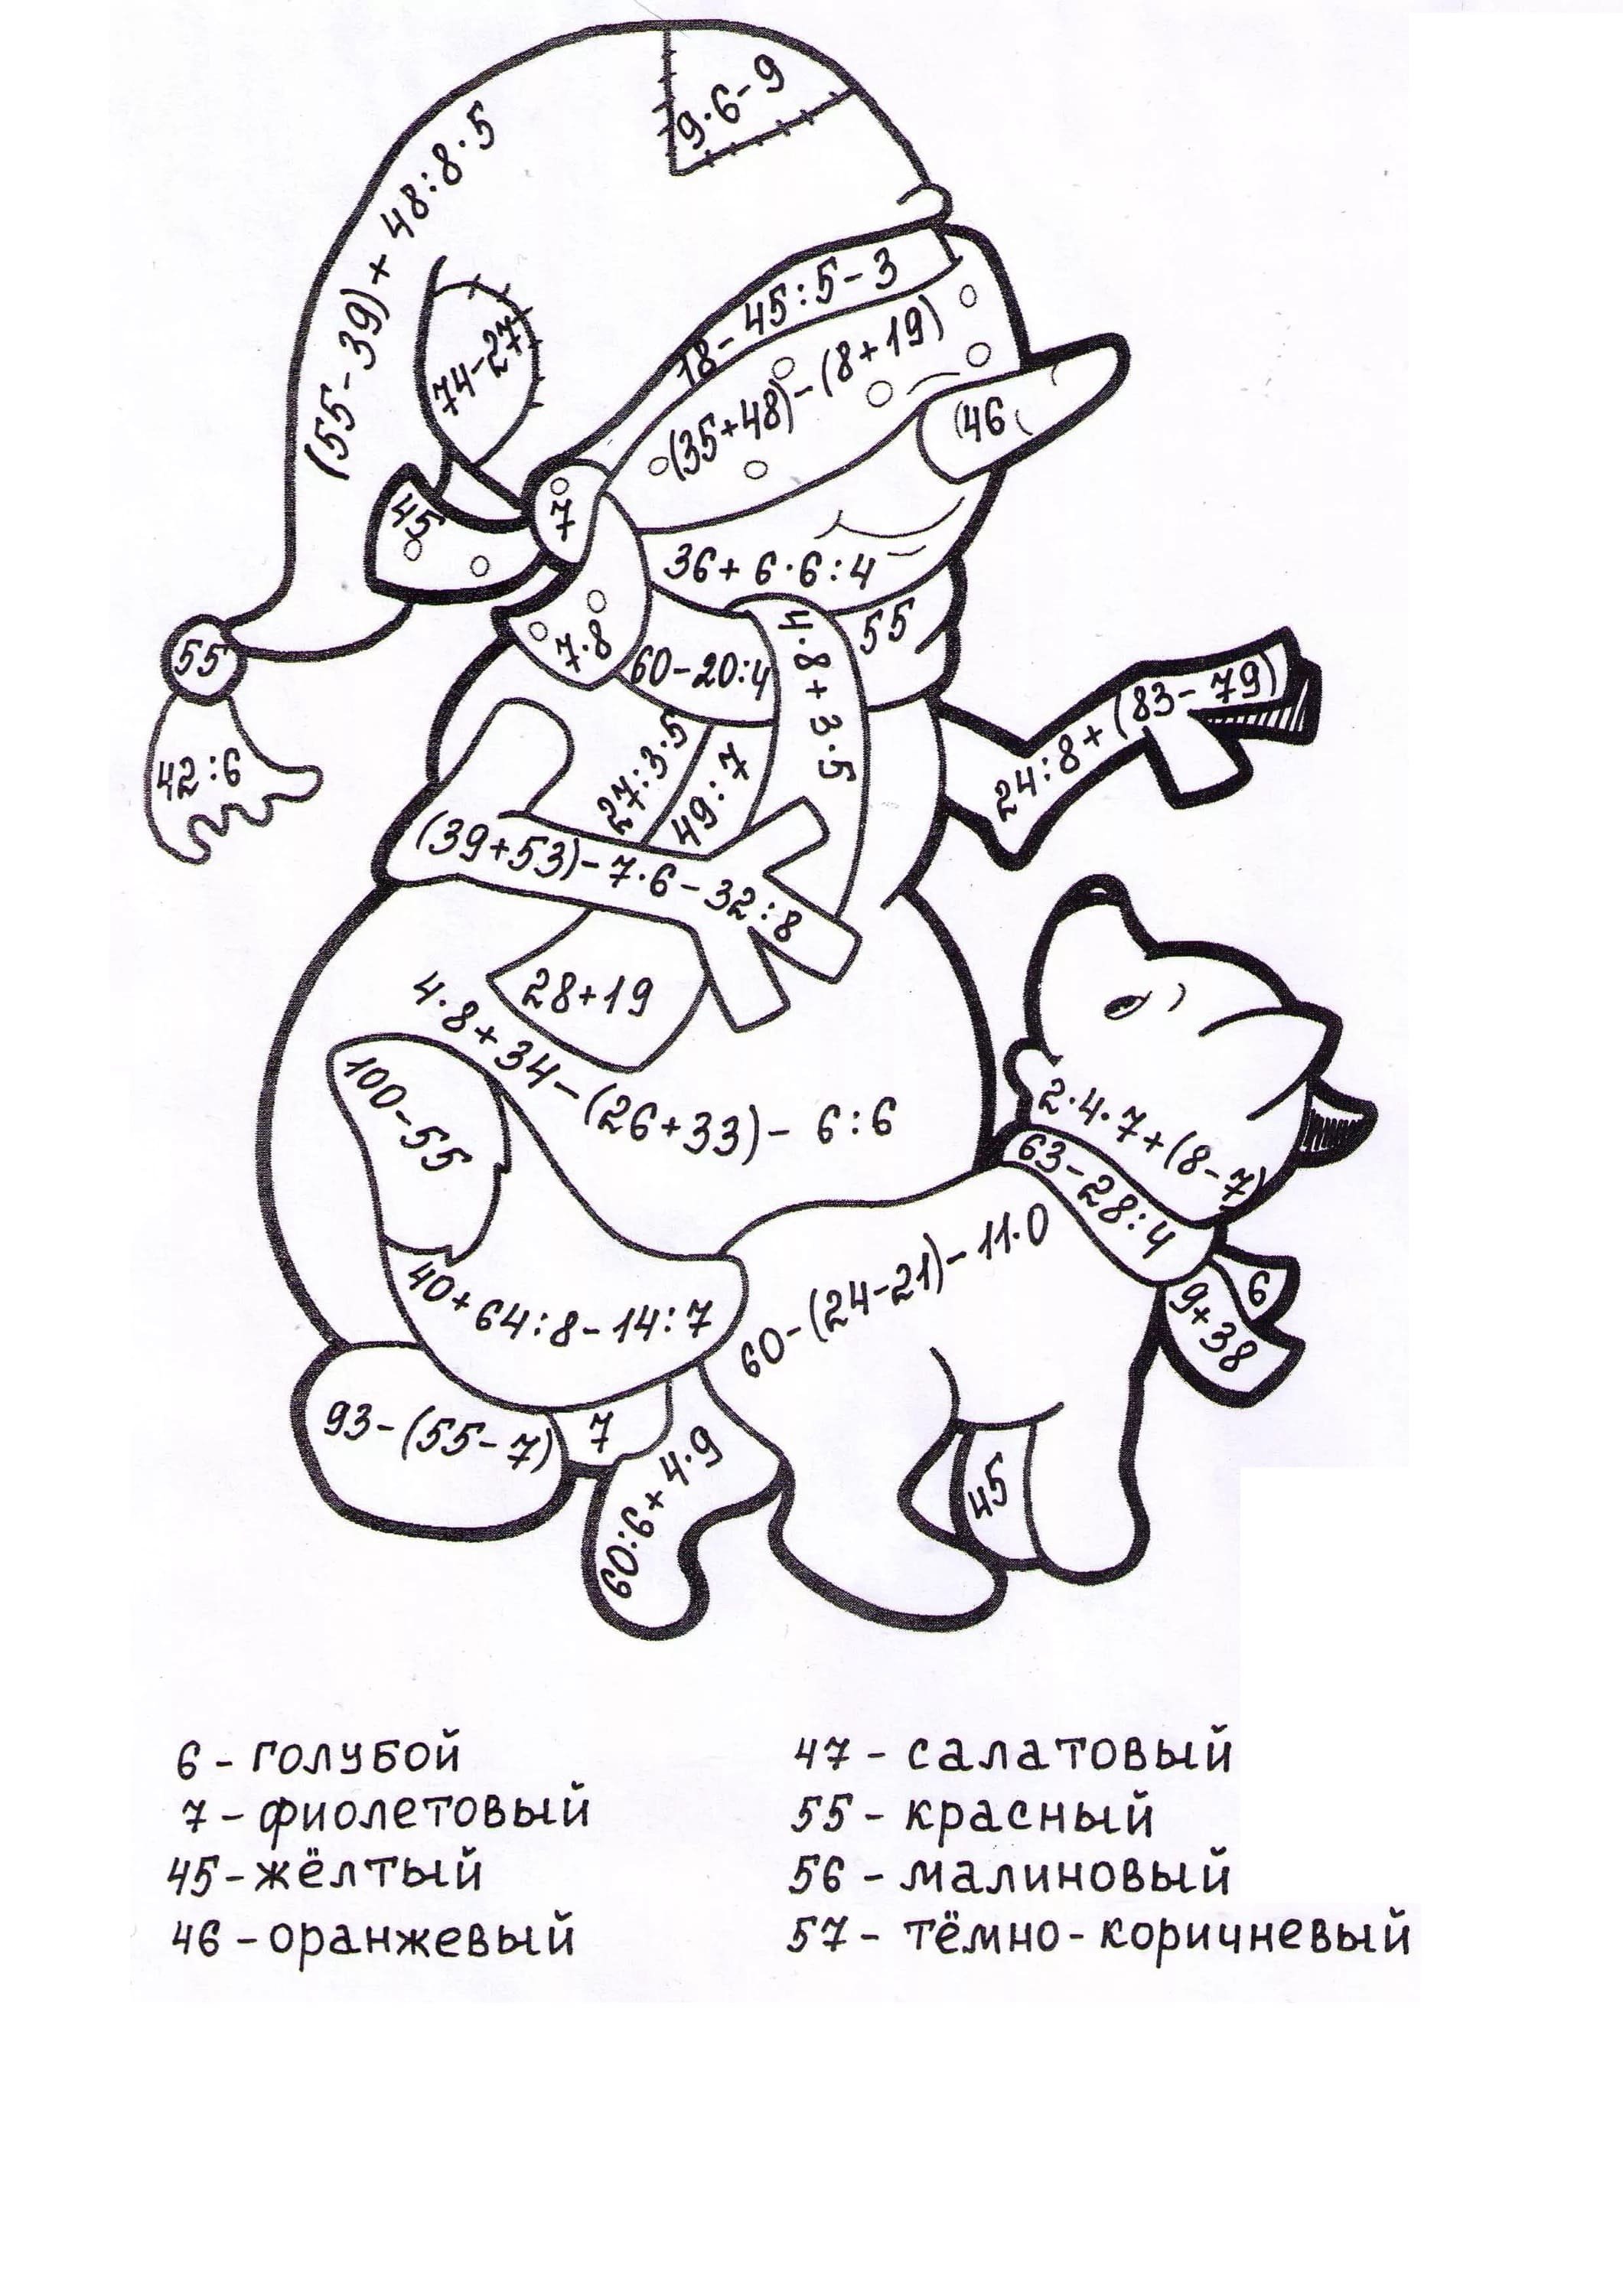 9·6-9
(55-39)+48:8·5
74-27
18-45:5-3
(35+48)-(8+19)
(46
45
7
36+6·6:4
7·8
60-20:4
4·8+3·5
55
55
42:6
27:3·5
49:7
24:8+(83-79)
(39+53)-7·6-32:8
28+19
4·8+34-(26+33)-6:6
100-55
2·4·7+(8-7)
63-28:4
40+64:8-14:7
60-(24-21)-11·0
6
9+38
93-(55-7)
7
60:6+4·9
45
6-голубой
7-фиолетовый
45-жёлтый
46-оранжевый
47-салатовый
55-красный
56-малиновый
57-тёмно-коричневый